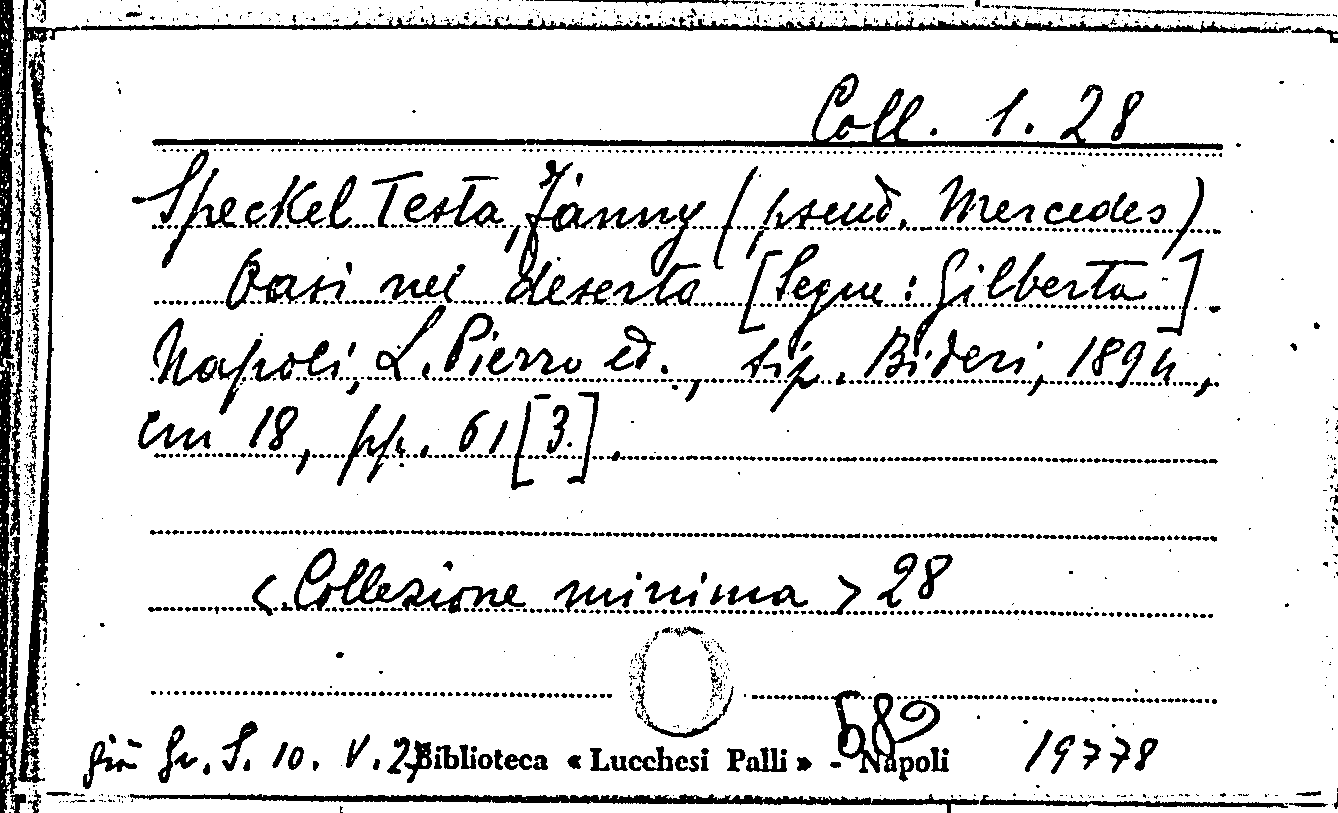 Coll. 1. 28
Speckel Testa, Fanny (pseud. Mercedes)
Oasi nel deserto [Segue: Gilberta].
Napoli, L. Pierro ed., tip. Bideri, 1894,
cm 18, pp. 61 [3].
<Collezione minima> 28
689
già Gr. S. 10. V. 27 Biblioteca « Lucchesi Palli » - Napoli 19778